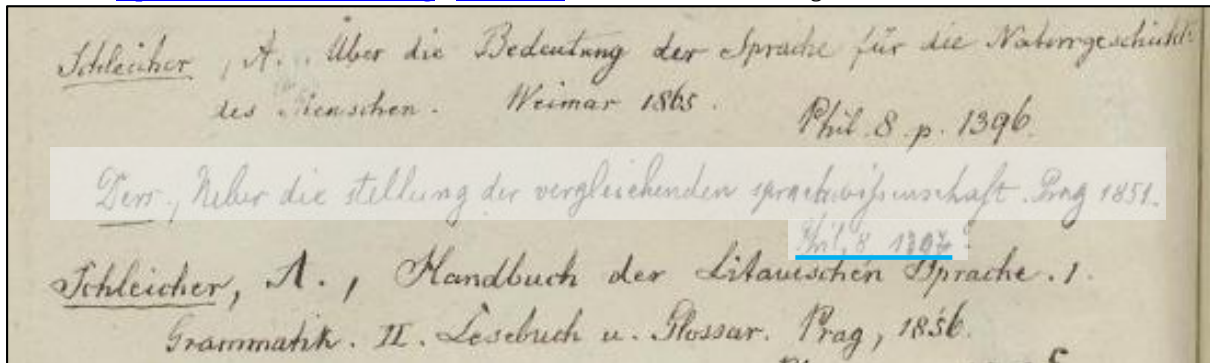 Schleicher, A. Über die Bedeutung der Sprache für die Naturgeschicht.
des Menschen. Weimar 1865.
Phil. 8. p. 1396.
Ders., Ueber die stellung der vergleichenden sprachwißenschaft. Prag 1851.
Phil. 8
Schleicher, A., Handbuch der Litauischen Sprache. 1.
Grammatik. II. Lesebuch u. Glossar. Prag, 1856.